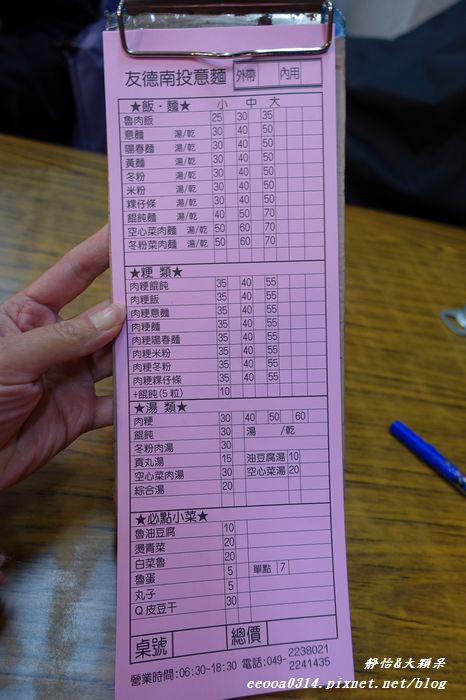 友德南投意麵 外帶 內用
★飯·麵★ 小 中 大
魯肉飯 25 30 35
意麵 湯/乾 30 40 50
陽春麵 湯/乾 30 40 50
黃麵 湯/乾 30 40 50
冬粉 湯/乾 30 40 50
米粉 湯/乾 30 40 50
粿仔條 湯/乾 30 40 50
餛飩麵 湯/乾 40 50 70
空心菜肉麵 湯/乾 50 60 70
冬粉菜肉麵 湯/乾 50 60 70
★粳 類★
肉粳餛飩 35 40 55
肉粳飯 35 40 55
肉粳意麵 35 40 55
肉粳麵 35 40 55
肉粳陽春麵 35 40 55
肉粳米粉 35 40 55
肉粳冬粉 35 40 55
肉粳粿仔條 35 40 55
+餛飩(5粒) 10
★湯 類★
肉粳 30 40 50 60
餛飩 30 湯 /乾
冬粉肉湯 30
貢丸湯 15 油豆腐湯 10
空心菜肉湯 30 空心菜湯 20
綜合湯 20
★必點小菜★
魯油豆腐 10
燙青菜 20
白菜魯 20
魯蛋 5 單點 7
丸子 5
Q皮豆干 30
桌號 總價
營業時間:06:30-18:30 電話:049-2238021
2241435
靜怡&大顆呆
eeooa0314.pixnet.net/blog